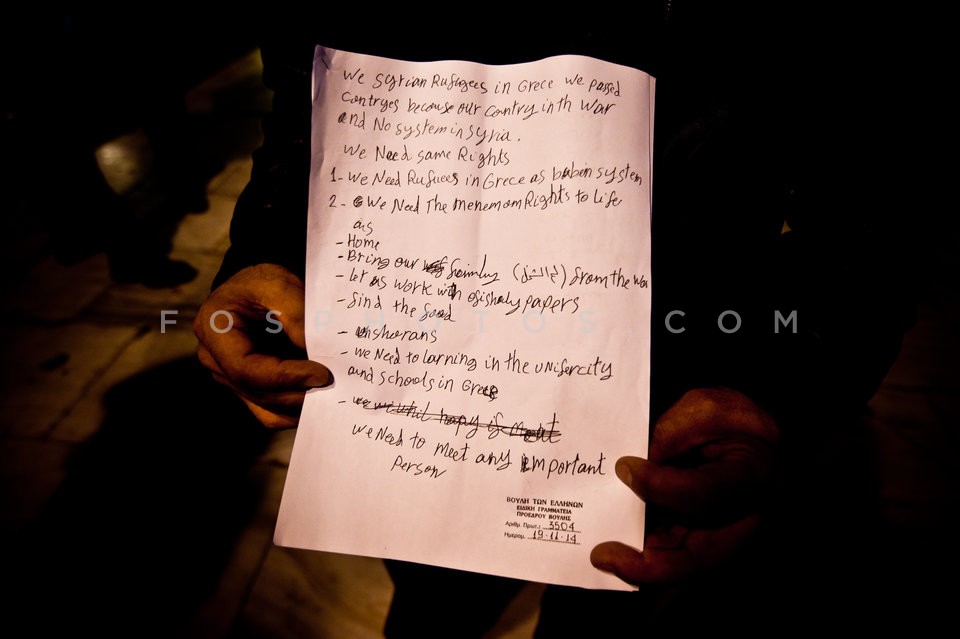 We Syrian Rufugees in Grece we passed
Contryes because our Country in th War
and No system in Syria.
We Need same Rights
1- We Need Rufuees in Grece as system
2- We Need The Menemom Rights to Life
as
- Home
- Bring our faimluy (لم الشمل) from the War
- Let us work with ofishaly papers
- Find the food
- unsheorans
- We Need to larning in the unifercity
and schools in Grece
- we
We Need to meet any important
Person
ΒΟΥΛΗ ΤΩΝ ΕΛΛΗΝΩΝ
ΕΙΔΙΚΗ ΓΡΑΜΜΑΤΕΙΑ
ΠΡΟΕΔΡΟΥ ΒΟΥΛΗΣ
Αριθμ. Πρωτ.: 3504
Ημερομ. 19.11.14
FOSPHOTOS.COM